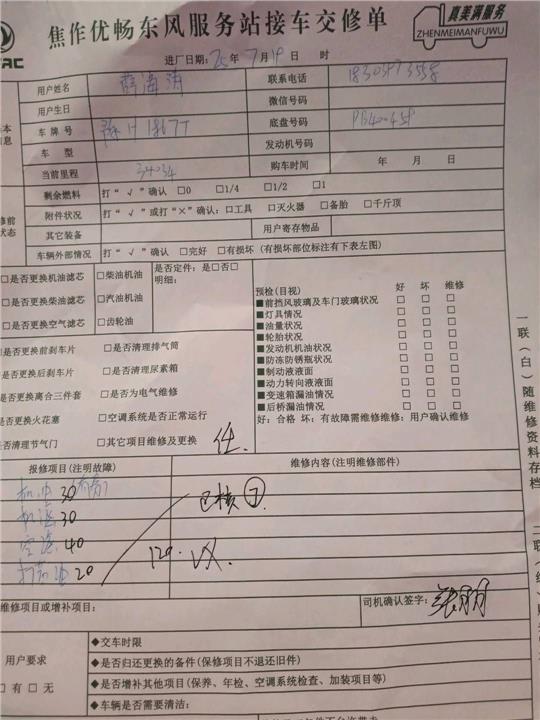 焦作优畅东风服务站接车交修单
真美满服务
ZHENMEIMANFUWU
进厂日期：25年7月19日 时
用户姓名
联系电话
用户生日
微信号码
车牌号
底盘号码
车型
发动机号码
当前里程 34034
购车时间 年 月 日
剩余燃料 打“√”确认 □0 □1/4 □1/2 □1
附件状况 打“√”或打“×”确认：□工具 □灭火器 □备胎 □千斤顶
其它装备
用户寄存物品
车辆外部情况 打“√”确认 □完好 □有损坏（有损坏部位标注有下表左图）
□是否更换机油滤芯 □柴油机油
□是否更换柴油滤芯 □汽油机油
□是否更换空气滤芯 □齿轮油
是否定件：是□否□
明细：
□是否更换前刹车片 □是否清理排气筒
是否更换后刹车片 □是否清理尿素箱
是否更换离合三件套 □是否为电气维修
是否更换火花塞 □空调系统是否正常运行
是否清理节气门 □其它项目维修及更换
预检（目视） 好 坏 维修
■前挡风玻璃及车门玻璃状况 □ □ □
■灯具情况 □ □ □
■油量状况 □ □ □
■轮胎状况 □ □ □
■发动机机油状况 □ □ □
■防冻防锈瓶状况 □ □ □
■制动液液面 □ □ □
■动力转向液液面 □ □ □
■变速箱漏油情况 □ □ □
■后桥漏油情况 □ □ □
好：合格 坏：有故障需维修维修：用户确认维修
报修项目（注明故障）
维修内容（注明维修部件）
机油 30
机滤 30
空滤 40
打黄油 20
已核
120.
维修项目或增补项目：
司机确认签字：
用户要求
□有 □无
◆交车时限
◆是否归还更换的备件（保修项目不退还旧件）
◆是否增补其他项目（保养、年检、空调系统检查、加装项目等）
◆车辆是否需要清洁：
一联（白）随维修资料存档